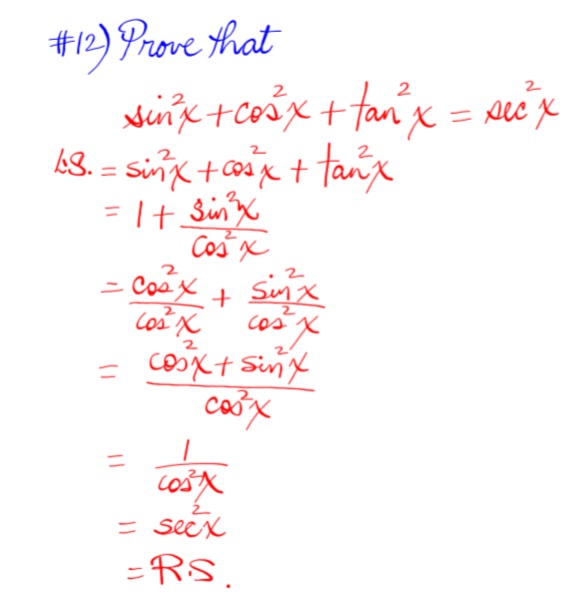 #12) Prove that
sin²x + cos²x + tan²x = sec²x
L.S. = sin²x + cos²x + tan²x
= 1 + sin²x / cos²x
= cos²x / cos²x + sin²x / cos²x
= cos²x + sin²x / cos²x
= 1 / cos²x
= sec²x
= R.S.